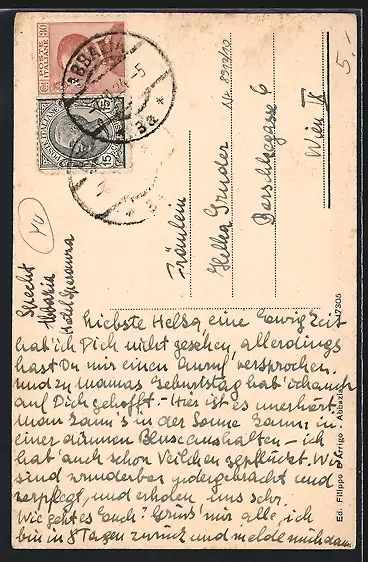 POSTE ITALIANE
30
POSTE ITALIANE
15 15
ABBAZIA
5.-
Fräulein
Helka Gruder
Berschkegasse 6
Wien IX
Specht
Abbazia
Hotel Speranza
Liebste Helka, eine Ewigkeit
hab' ich Dich nicht gesehen, allerdings
hast Du mir einen Anruf versprochen.
Und zu Mamas Geburtstag hab' ich auch
auf Dich gehofft. - Hier ist es unerhört.
Man kann's in der Sonne kaum in
einer dünnen Bluse aushalten - ich
hab' auch schon Veilchen gepflückt. Wir
sind wunderbar untergebracht und
verpflegt, und erholen uns sehr.
Wie geht es Euch? Grüss' mir alle, ich
bin in 8 Tagen zurück und melde mich dann.
Ed. Filippo D'Arrigo - Abbazia
17305